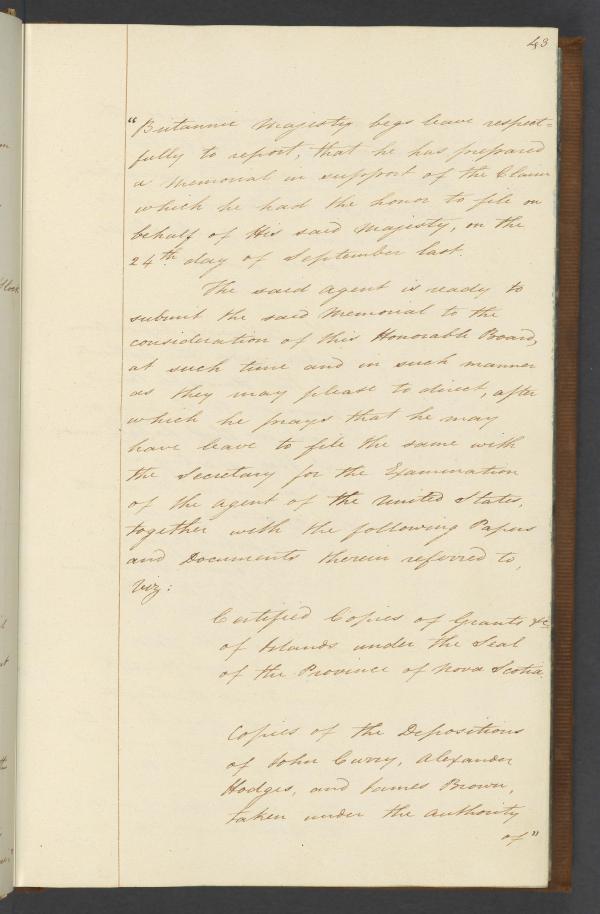 43
"Britannic Majesty begs leave respect=
fully to report, that he has prepared
a Memorial in support of the Claim
which he had the honor to file on
behalf of His said Majesty, on the
24th day of September last.
The said Agent is ready to
submit the said Memorial to the
consideration of this Honorable Board,
at such time and in such manner
as they may please to direct, after
which he prays that he may
have leave to file the same with
the Secretary for the Examination
of the Agent of the United States,
together with the following Papers
and Documents therein referred to,
Viz:
Certified Copies of Grants &c
of Islands under the Seal
of the Province of Nova Scotia.
Copies of the Depositions
of John Curry, Alexander
Hodges, and James Brown,
taken under the authority
of"